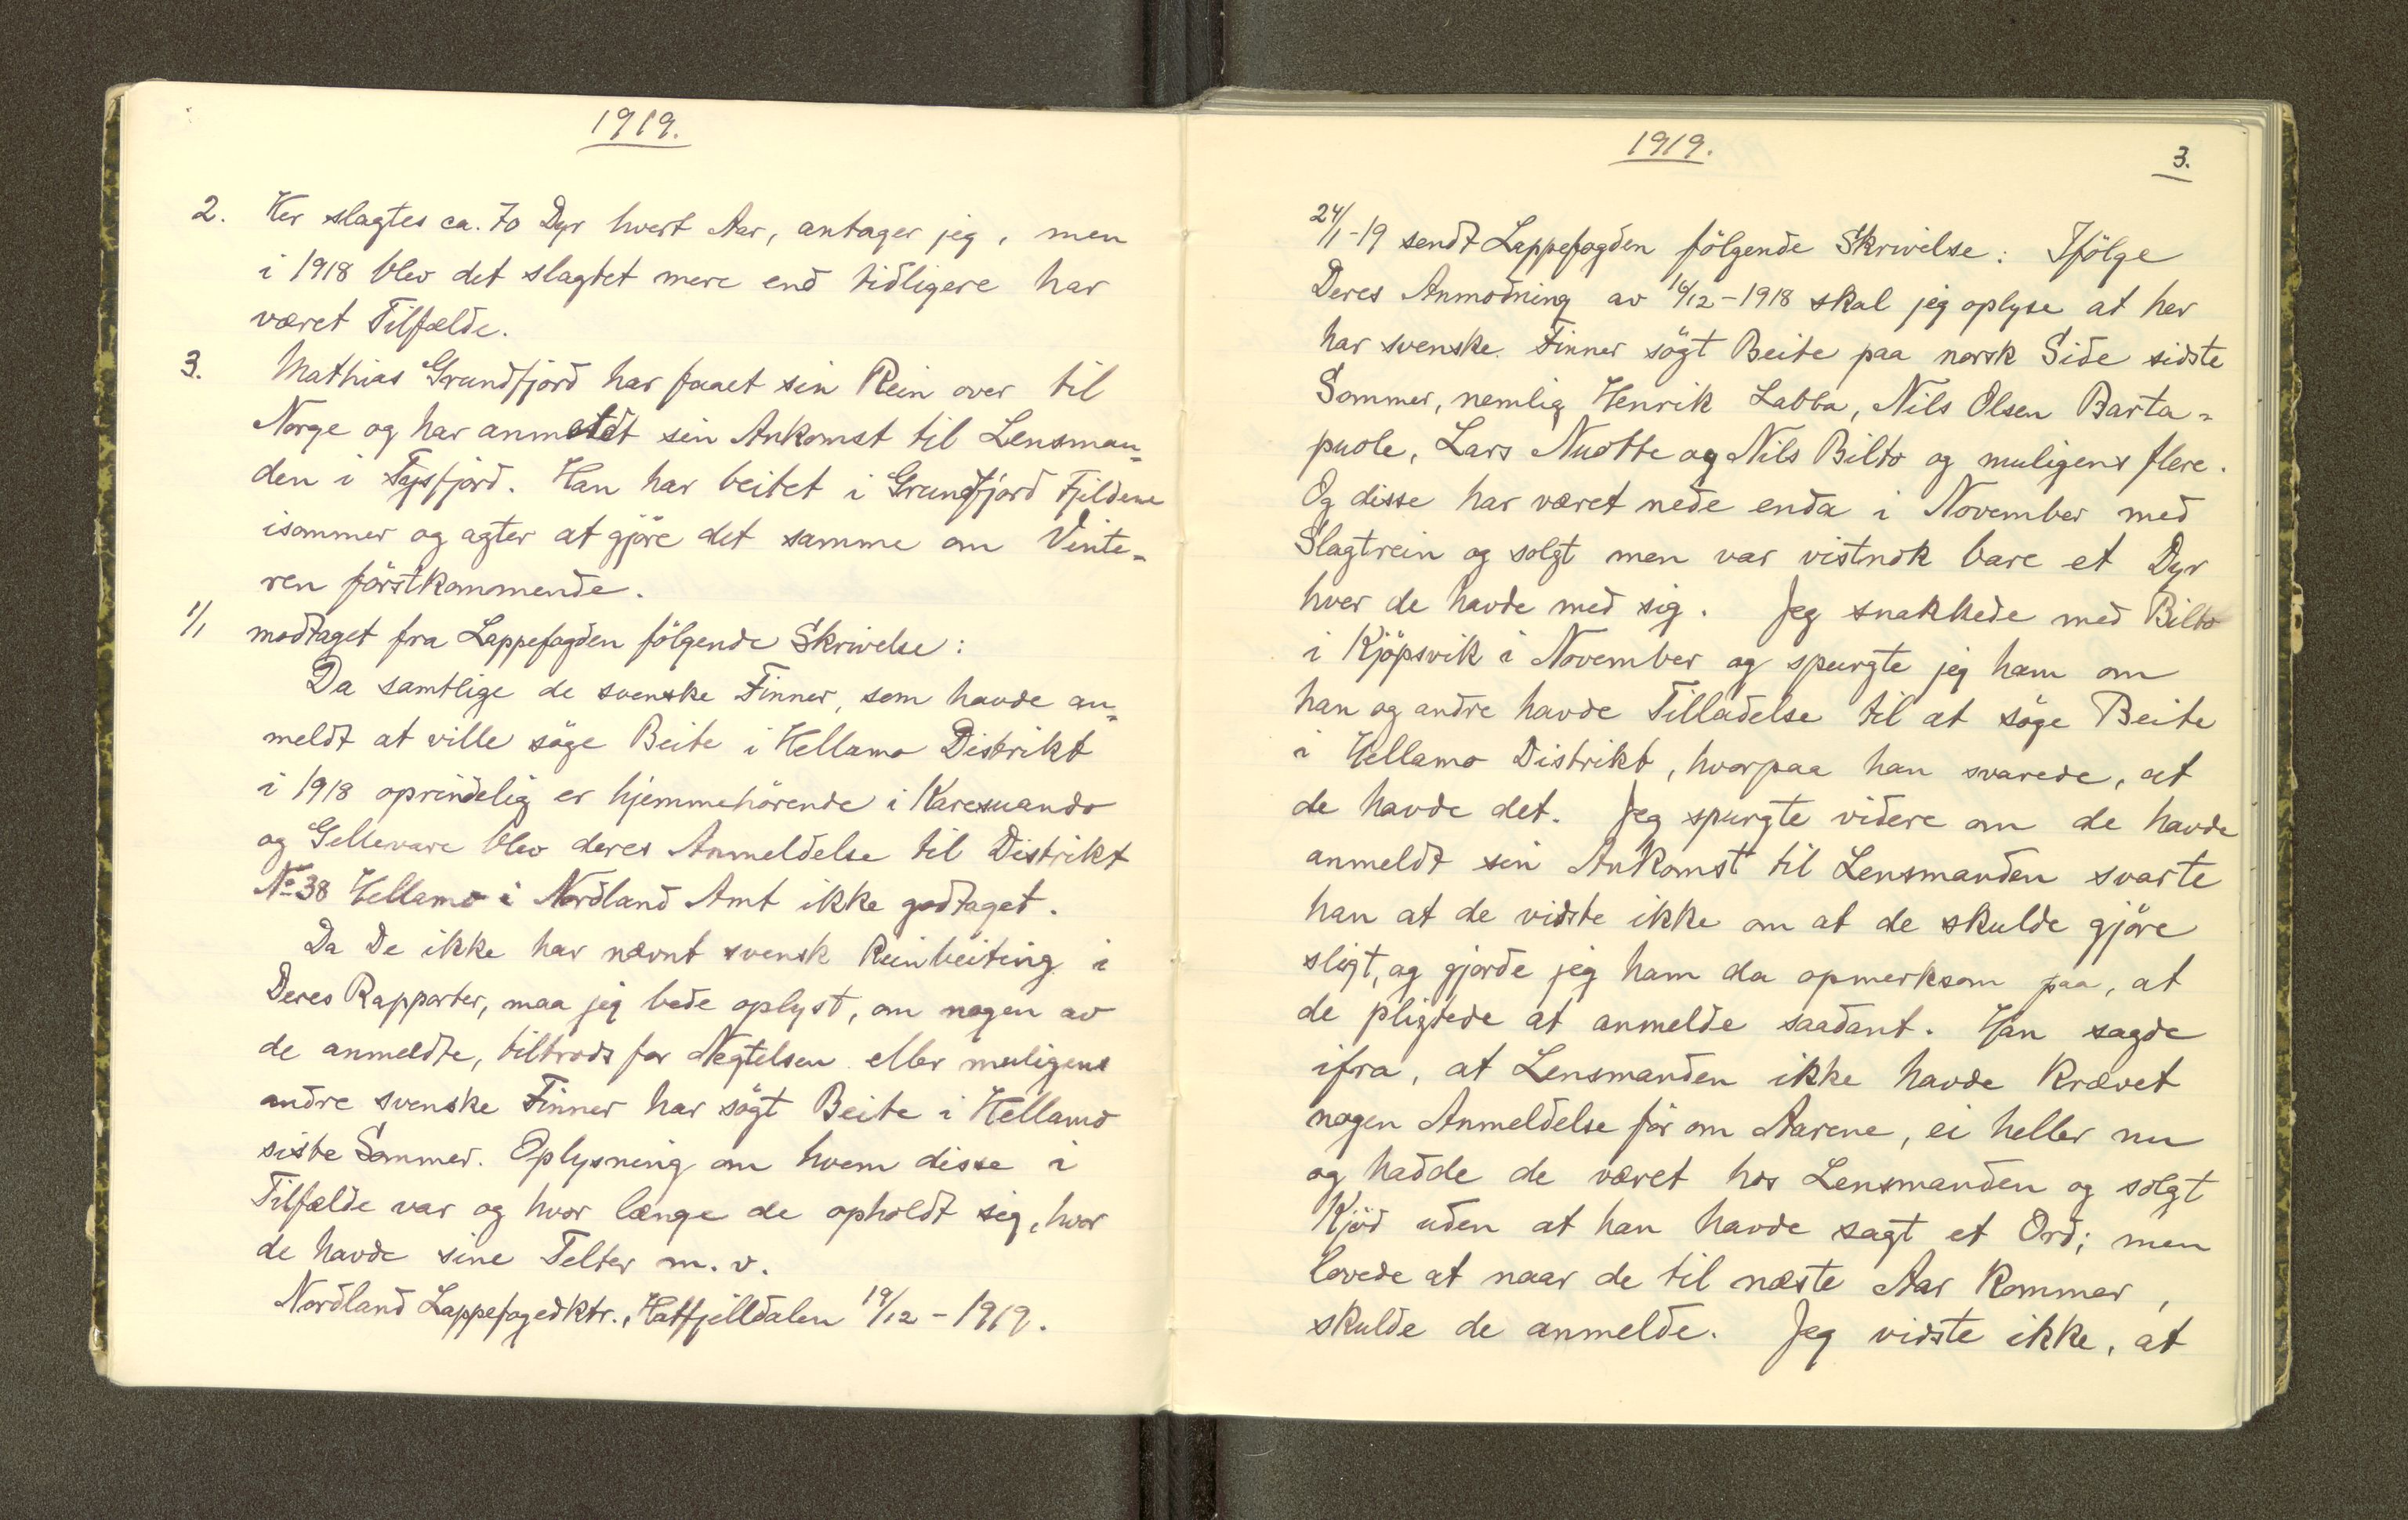 1919.
2. Her slagtes ca. 70 Dyr hvert Aar, antager jeg, men
i 1918 blev det slagtet mere end tidligere har
været Tilfælde.
3. Mathias Grundfjord har faaet sin Rein over til
Norge og har anmeldt sin Ankomst til Lensman=
den i Tysfjord. Han har beitet i Grundfjord Fjeldene
isommer og agter at gjöre det samme om Vinte=
ren förstkommende.
1/1 modtaget fra Lappefogden fölgende Skrivelse:
Da samtlige de svenske Finner, som havde an=
meldt at ville söge Beite i Hellamo Distrikt
i 1918 oprindelig er hjemmehörende i Karesuando
og Gellevare blev deres Anmeldelse til Distrikt
No 38 Hellamo i Nordland Amt ikke godtaget.
Da De ikke har nævnt svensk Reinbeiting i
Deres Rapporter, maa jeg bede oplyst, om nogen av
de anmeldte, tiltrods for Negtelsen eller muligens
andre svenske Finner har sögt Beite i Hellamo
siste Sommer. Oplysning om hvem disse i
Tilfælde var og hvor længe de opholdt sig, hvor
de havde sine Telter m. v.
Nordland Lappefogedktr., Hatfjelldalen 19/12 - 1919.
1919.
3.
24/1-19 sendt Lappefogden fölgende Skrivelse: Ifölge
Deres Anmodning av 19/12-1918 skal jeg oplyse at her
har svenske Finner sögt Beite paa norsk Side sidste
Sommer, nemlig Henrik Labba, Nils Olsen Barta=
puole, Lars Nudtte og Nils Bilto og muligens flere.
Og disse har været nede enda i November med
Slagtrein og solgt men var vistnok bare et Dyr
hver de havde med sig. Jeg snakkede med Bilto
i Kjöpsvik i November og spurgte jeg ham om
han og andre havde Tilladelse til at söge Beite
i Hellamo Distrikt, hvorpaa han svarede, at
de havde det. Jeg spurgte videre om de havde
anmeldt sin Ankomst til Lensmanden svarte
han at de vidste ikke om at de skulde gjöre
sligt, og gjorde jeg ham da opmerksom paa, at
de pligtede at anmelde saadant. Han sagde
ifra, at Lensmanden ikke havde krævet
nogen Anmeldelse för om Aarene, ei heller nu
og hadde de været hos Lensmanden og solgt
Kjöd uden at han havde sagt et Ord; men
lovede at naar de til næste Aar kommer,
skulde de anmelde. Jeg vidste ikke, at